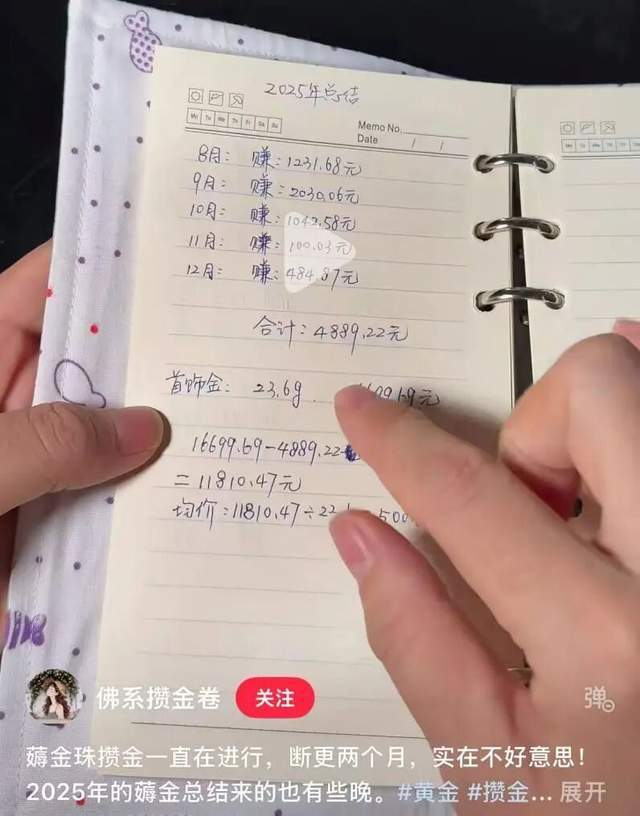 2025年总结
Mo Tu We Th Fr Sa Su
Memo No.
Date / /
8月: 赚:1231.68元
9月: 赚:2030.06元
10月: 赚:1042.58元
11月: 赚:100.03元
12月: 赚:484.87元
合计:4889.22元
首饰金: 23.6g 699.69元
16699.69-4889.22
=11810.47元
均价:11810.47÷2 500
佛系攒金卷
关注
弹
薅金珠攒金一直在进行,断更两个月,实在不好意思!
2025年的薅金总结来的也有些晚。#黄金 #攒金... 展开